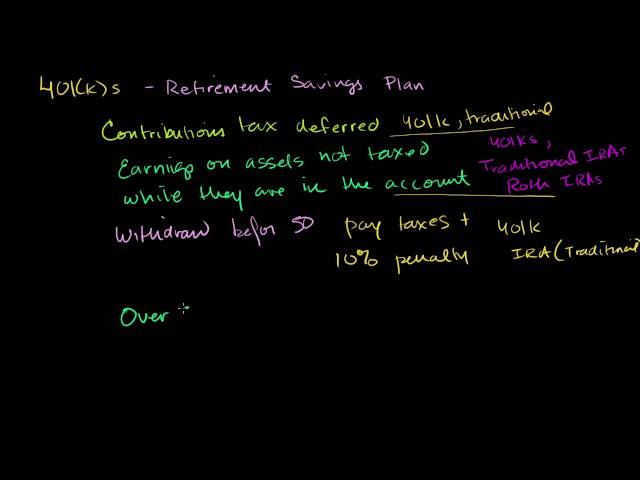 401(k)s - Retirement Savings Plan
Contributions tax deferred 401k, traditional
Earnings on assets not taxed 401ks,
Traditional IRAs
while they are in the account Roth IRAs
Withdraw befor 50 pay taxes + 401k
10% penalty IRA (Traditional)
Over